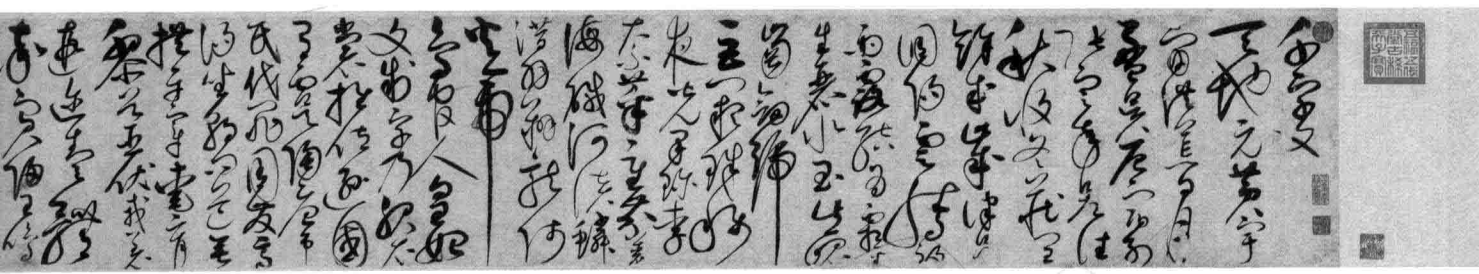 千字文
天地元黄宇
宙洪荒日月
盈昃辰宿列
張寒来暑往
秋收冬藏閏
餘成歲律吕
調陽雲騰致
雨露結為霜金
生麗水玉出崑
岡劍號
巨闕珠稱
夜光果珍李
柰菜重芥薑
海鹹河淡鱗
潛羽翔龍師
火帝
鳥官人皇始
文制字乃服衣
裳推位遜國
有虞陶唐弔
民伐罪周發商
湯坐朝問道垂
拱平章愛育
黎首臣伏戎羌
遐邇壹體
率賓歸王鳴